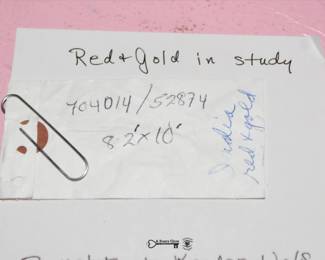 Red & Gold in study
704014/52874
8.2'x10'
India
red & gold